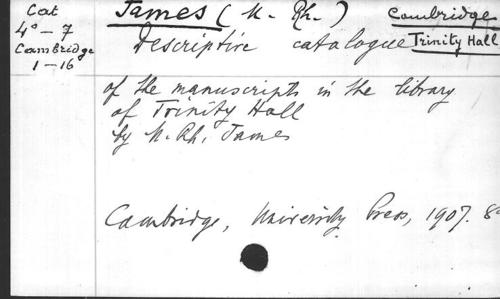 Cat
4° - 7
Cambridge
1-16
James (M. Rh.)
Cambridge
Trinity Hall
Descriptive catalogue
of the manuscripts in the library
of Trinity Hall
by M. Rh. James
Cambridge, University Press, 1907. 8°